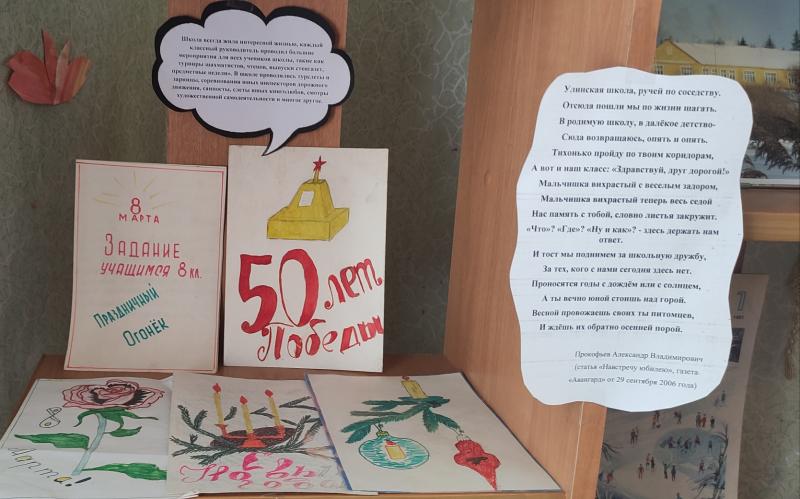 Школа всегда жила интересной жизнью, каждый
классный руководитель проводил большие
мероприятия для всех учеников школы, такие как
турниры шахматистов, чтецов, выпуски стенгазет,
предметные недели. В школе проводились турслеты и
зарницы, соревнования юных инспекторов дорожного
движения, санпосты, слеты юных книголюбов, смотры
художественной самодеятельности и многое другое.
8
МАРТА
ЗАДАНИЕ
УЧАЩИМСЯ 8 КЛ.
ПРАЗДНИЧНЫЙ
ОГОНЁК
50 лет
Победы
8
Марта!
С Новым
Улинская школа, ручей по соседству.
Отсюда пошли мы по жизни шагать.
В родимую школу, в далёкое детство-
Сюда возвращаюсь, опять и опять.
Тихонько пройду по твоим коридорам,
А вот и наш класс: «Здравствуй, друг дорогой!»
Мальчишка вихрастый с веселым задором,
Мальчишка вихрастый теперь весь седой
Нас память с тобой, словно листья закружит.
«Что»? «Где»? «Ну и как»? - здесь держать нам
ответ.
И тост мы поднимем за школьную дружбу,
За тех, кого с нами сегодня здесь нет.
Проносятся годы с дождём или с солнцем,
А ты вечно юной стоишь над горой.
Весной провожаешь своих ты питомцев,
И ждёшь их обратно осенней порой.
Прокофьев Александр Владимирович
(статья «Навстречу юбилею», газета
«Авангард» от 29 сентября 2006 года)